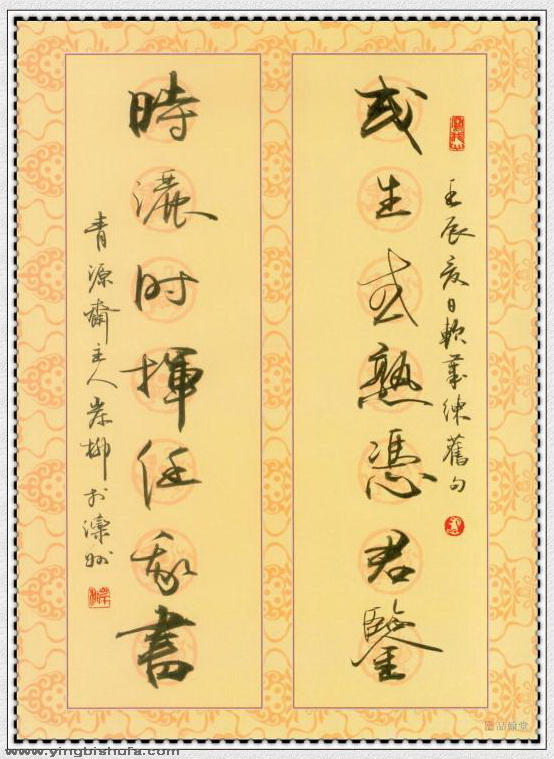 壬辰夏日軟筆練舊句
或生或熟憑君鑒
時灑时揮任我書
青源齋主人岸柳於州
www.yingbishufa.com